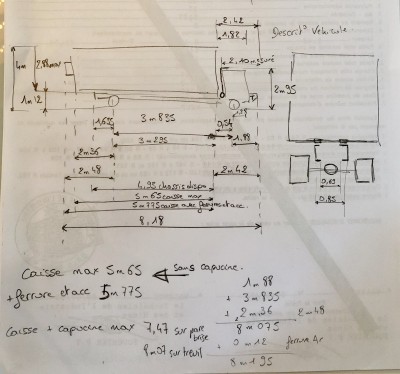 2,42
1,82
Descrit° Véhicule
4m
2,88 max
2,10 mesuré
2m95
1m12
1,635
3m835
0,54
1,88
3m295
2m36
2m48
2m42
0,65
0,85
4,95 chassis dispo
5m65 caisse max
5m775 caisse avec ferrures et acc.
8,18
Caisse max 5m65
sans capucine.
+ ferrure et acc 5m775
Caisse + capucine max 7,47 sur pare brise
9m07 sur treuil
1m88
+ 3m835
+ 2m36
2m48
8m075
+ 0m12
ferrure Ar
8m195